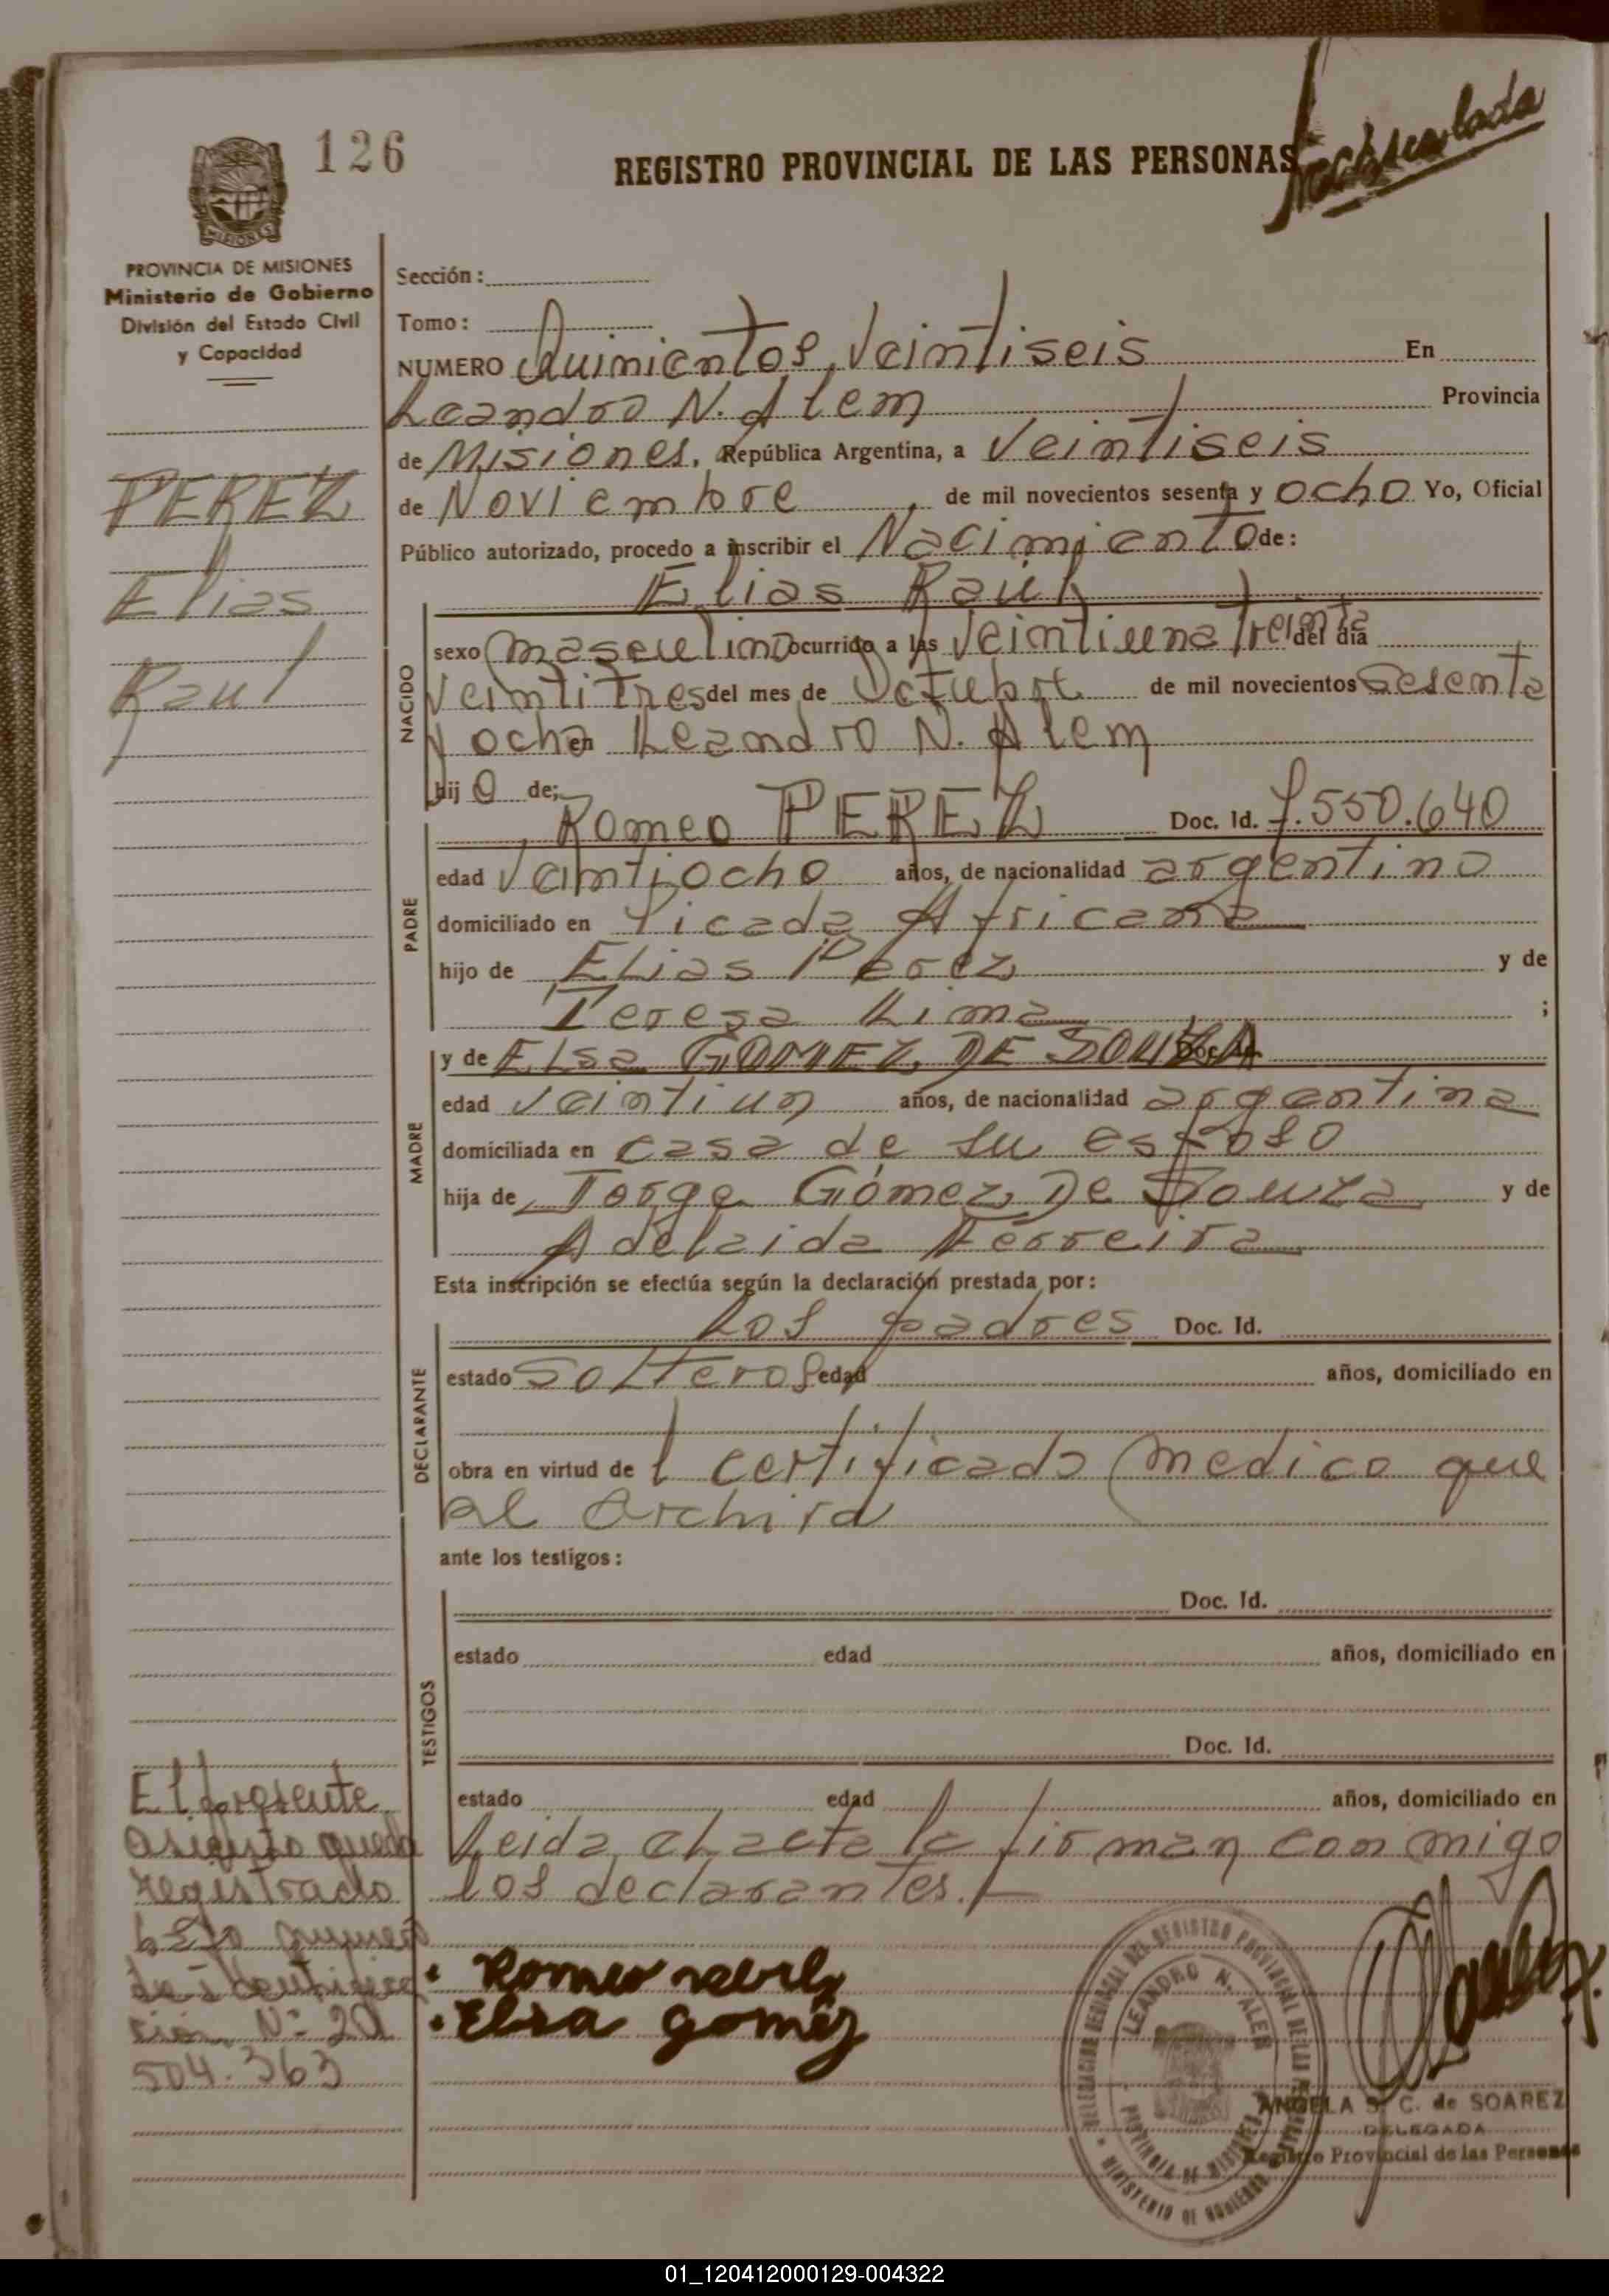 126
REGISTRO PROVINCIAL DE LAS PERSONAS
MISIONES
PROVINCIA DE MISIONES
Ministerio de Gobierno
División del Estado Civil
y Capacidad
PEREZ
Elias
Raul
Sección:
Tomo:
NUMERO Quinientos Veintiseis En
Leandro N. Alem Provincia
de Misiones, República Argentina, a Veintiseis
de Noviembre de mil novecientos sesenta y ocho Yo, Oficial
Público autorizado, procedo a inscribir el Nacimiento de:
Elias Raúl
NACIDO
sexo masculino ocurrido a las Veintiuna treinta del día
Veintitres del mes de Octubre de mil novecientos Sesenta
y ocho en Leandro N. Alem
hij o de;
PADRE
Romeo PEREZ Doc. Id. 7.550.640
edad Veintiocho años, de nacionalidad argentino
domiciliado en Picada Africana
hijo de Elias Perez y de
Teresa Lima ;
MADRE
y de Elsa GOMEZ DE SOUZA Doc. Id.
edad Veintiun años, de nacionalidad argentina
domiciliada en casa de su esposo
hija de Jorge Gómez De Souza y de
Adelaida Ferreira
Esta inscripción se efectúa según la declaración prestada por:
DECLARANTE
Los padres Doc. Id.
estado Solteros edad años, domiciliado en
obra en virtud de l certificado medico que
se archiva
ante los testigos:
TESTIGOS
Doc. Id.
estado edad años, domiciliado en
Doc. Id.
estado edad años, domiciliado en
Leida el acta la firman conmigo
los declarantes.
El presente
asiento queda
registrado
bajo numero
de identifica
ción Nº 20
504.363
Romeo
Elsa gomez
DELEGACION REGISTRO PROVINCIAL DE LAS PERSONAS
LEANDRO N. ALEM
PROVINCIA DE MISIONES
MINISTERIO DE GOBIERNO
ANGELA S. C. de SOAREZ
DELEGADA
Registro Provincial de las Personas
01_120412000129-004322